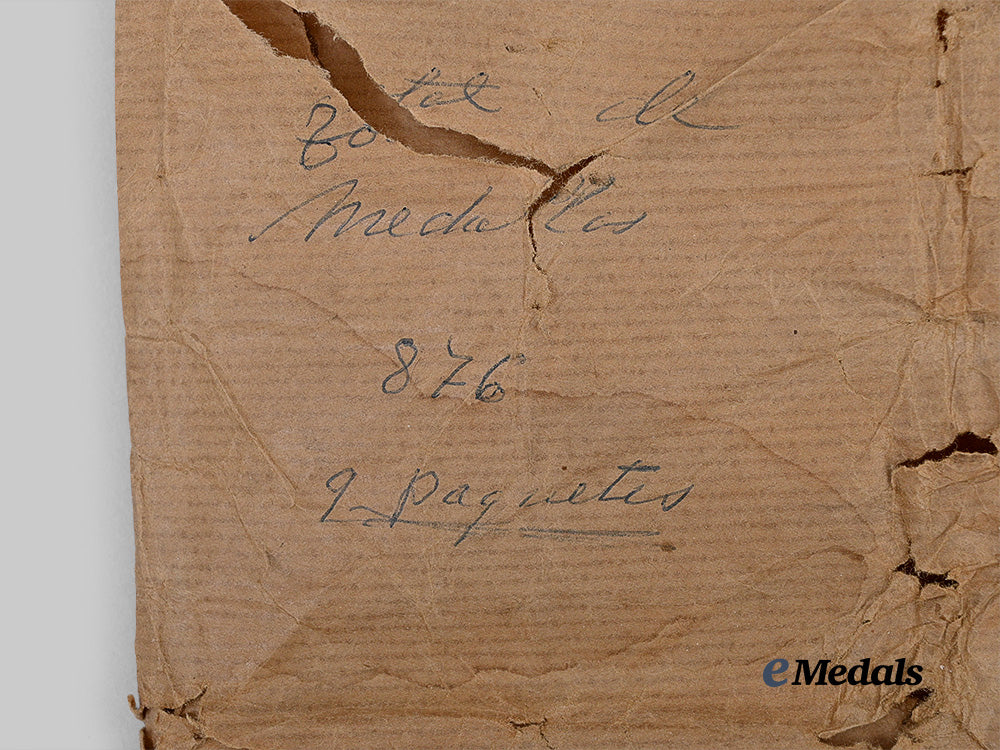 Total de
Medallas
876
9 paquetes
eMedals